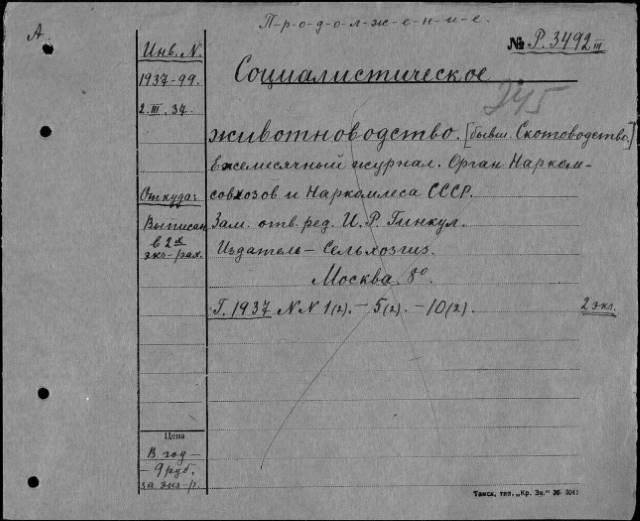 А.
П-р-о-д-о-л-ж-е-н-и-е.
Инв. N.
№ Р. 3492 III
1937-99.
Социалистическое
2.III.37.
245
животноводство. [бывш. Скотоводство.]
Ежемесячный журнал. Орган Нарком-
Откуда:
совхозов и Наркомлеса СССР.
Выписан
Зам. отв. ред. И. Р. Гинкул.
в 2х
экз-рах.
Издатель – Сельхозгиз.
Москва. 8º
Г. 1937 N N 1(2). – 5(2). – 10(2).
2 экз.
Цена
В год –
– 9 руб.
за экз-р.
Томск, тип. „Кр. Зн."